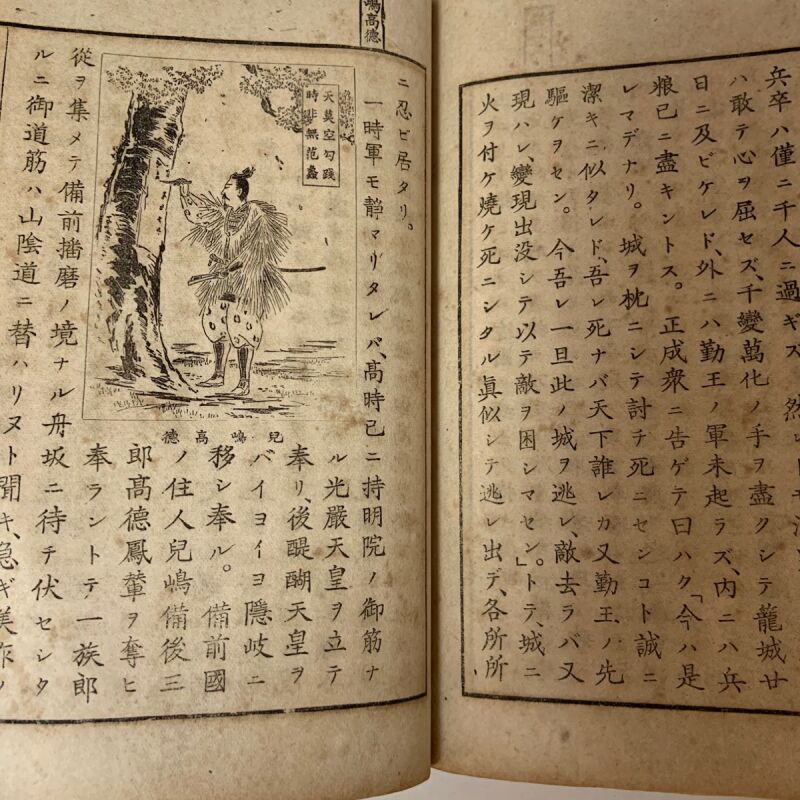 兵卒ハ僅ニ千人ニ過ギズ
ハ敢テ心ヲ屈セズ、千變萬化ノ手ヲ盡クシテ籠城廿
日ニ及ビケレド、外ニハ勤王ノ軍未起ラズ、内ニハ兵
粮已ニ盡キントス。正成衆ニ告ゲテ曰ハク「今ハ是
レマデナリ。城ヲ枕ニシテ討チ死ニセンコト誠ニ
潔キニ似タレド、吾レ死ナバ天下誰レカ又勤王ノ先
驅ケヲセン。今吾レ一旦此ノ城ヲ逃レ、敵去ラバ又
現ハレ、變現出没シテ以テ敵ヲ困シマセン。」トテ、城ニ
火ヲ付ケ燒ケ死ニシタル眞似シテ逃レ出デ、各所所
嶋高德
ニ忍ビ居タリ。
一時軍モ靜マリタレバ、高時已ニ持明院ノ御筋ナ
天莫空勾踐
時非無范蠡
兒嶋高德
ル光嚴天皇ヲ立テ
奉リ、後醍醐天皇ヲ
バイヨイヨ隱岐ニ
移シ奉ル。備前國
ノ住人兒嶋備後三
郎高德鳳輦ヲ奪ヒ
奉ラントテ一族郎
從ヲ集メテ備前播磨ノ境ナル舟坂ニ待チ伏セシタ
ルニ御道筋ハ山陰道ニ替ハリヌト聞キ、急ギ美作ノ